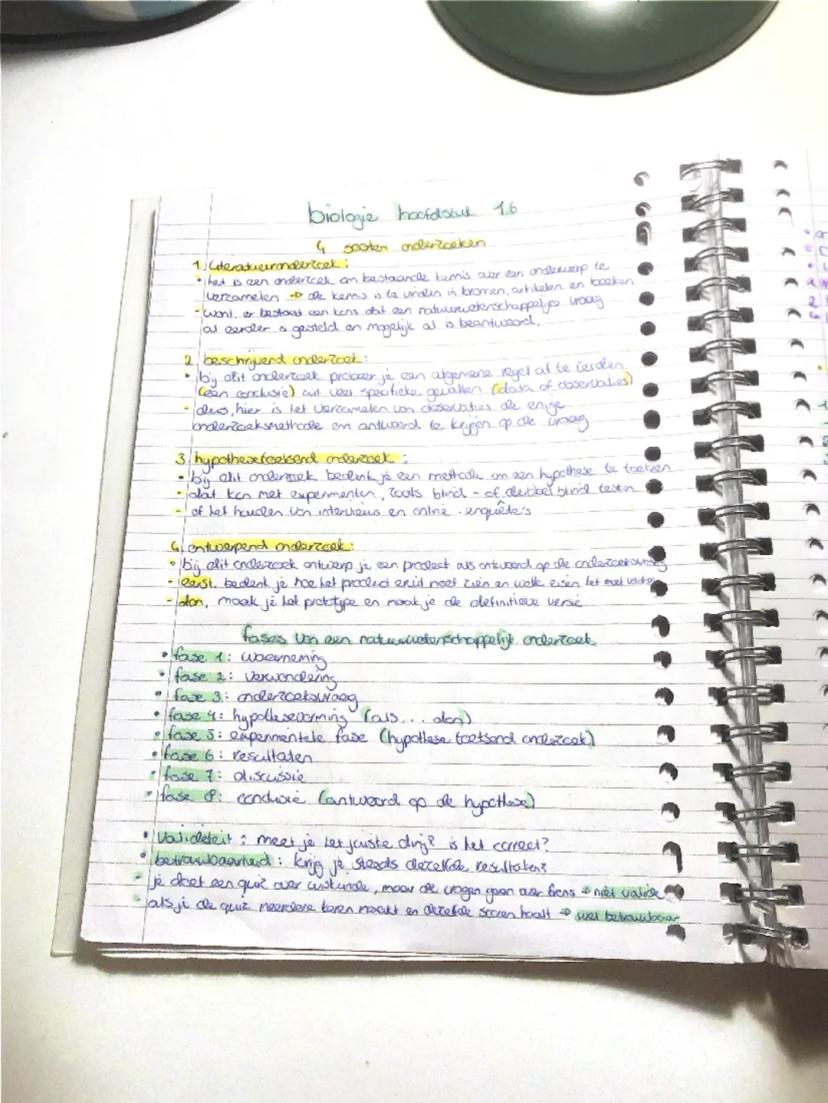 biologie hoofdstuk 1.6
4 soorten onderzoeken
1. literatuuronderzoek:
• het is een onderzoek om bestaande kennis over een onderwerp te
verzamelen → de kennis is te vinden in bronnen, artikelen en boeken
- want er bestaat een kans dat een natuurwetenschappelijke vraag
al eerder is gesteld en mogelijk al is beantwoord.
2 beschrijvend onderzoek:
• bij dit onderzoek probeer je een algemene regel af te leiden
(een conclusie) uit veel specifieke gevallen (data of observaties)
- dus, hier is het verzamelen van observaties de enige
onderzoeksmethode om antwoord te krijgen op de vraag
3 hypothesetoetsend onderzoek:
• bij dit onderzoek bedenk je een methode om een hypothese te toetsen
- dat kan met experimenten, zoals blind- of dubbel blind testen
- of het houden van interviews en online enquête's
4 ontwerpend onderzoek:
• bij dit onderzoek ontwerp je een product als antwoord op de onderzoeksvraag
- eerst, bedenk je hoe het product eruit moet zien en welk eisen het moet
- dan, maak je het prototype en maak je de definitieve versie
fases van een natuurwetenschappelijk onderzoek
• fase 1: waarneming
• fase 2: verwondering
• fase 3: onderzoeksvraag
• fase 4: hypothesevorming (als... dan)
• fase 5: experimentele fase (hypothese toetsend onderzoek)
• fase 6: resultaten
• fase 7: discussie
• fase 8: conclusie (antwoord op de hypothese)
• validiteit: meet je het juiste ding? is het correct?
• betrouwbaarheid: krijg je steeds dezelfde resultaten?
- je doet een quiz over wiskunde, maar de vragen gaan over frans → niet valide
- als je de quiz meerdere keren maakt en dezelfde scoren haalt → wel betrouwbaar